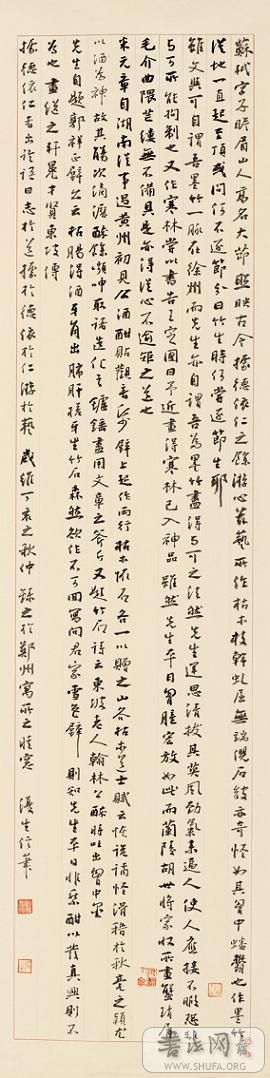 蘇軾字子瞻眉山人高名大節照映古今據德依仁之餘游心茲藝所作枯木枝幹虬屈無端倪石皴亦奇怪如其胸中蟠鬱也作墨竹
從地一直起至頂或問何不逐節分曰竹生時何嘗逐節生耶
雖文與可自謂吾墨竹一派在徐州而先生亦自謂吾為墨竹盡得與可之法然先生運思清拔其英風勁氣來逼人使人應接不暇恐非
與可所能拘制也又作寒林嘗以書告王定國曰予近畫得寒林已入神品雖然先生平日胸臆宏放如此而蘭陵胡世將家收所畫蟹瑣屑
毛介曲隈芒縷無不備具是亦得從心不逾矩之道也
米元章自湖南從事過黃州初見公酒酣貼觀音紙壁上起作兩行枯木怪石各一以贈之山谷枯木道士賦云恢詭譎怪滑稽於秋毫之穎尤
以酒為神故其觴次滴瀝醉餘嚬呻取諸造化之爐錘盡用文章之斧斤又題竹石詩云東坡老人翰林公醉時吐出胸中墨
先生自題郭祥正壁亦云枯腸得酒芒角出肺肝槎牙生竹石森然欲作不可留寫向君家雪色壁 則知先生平日非乘酣以發真興則不
為也 畫繼之軒冕才賢東坡傳
據德依仁者出論語曰志於道據於德依於仁游於藝 歲維丁亥之秋仲 錄之於鄭州寓所之晴窗 漫生信筆
书法网
WWW.SHUFA.COM